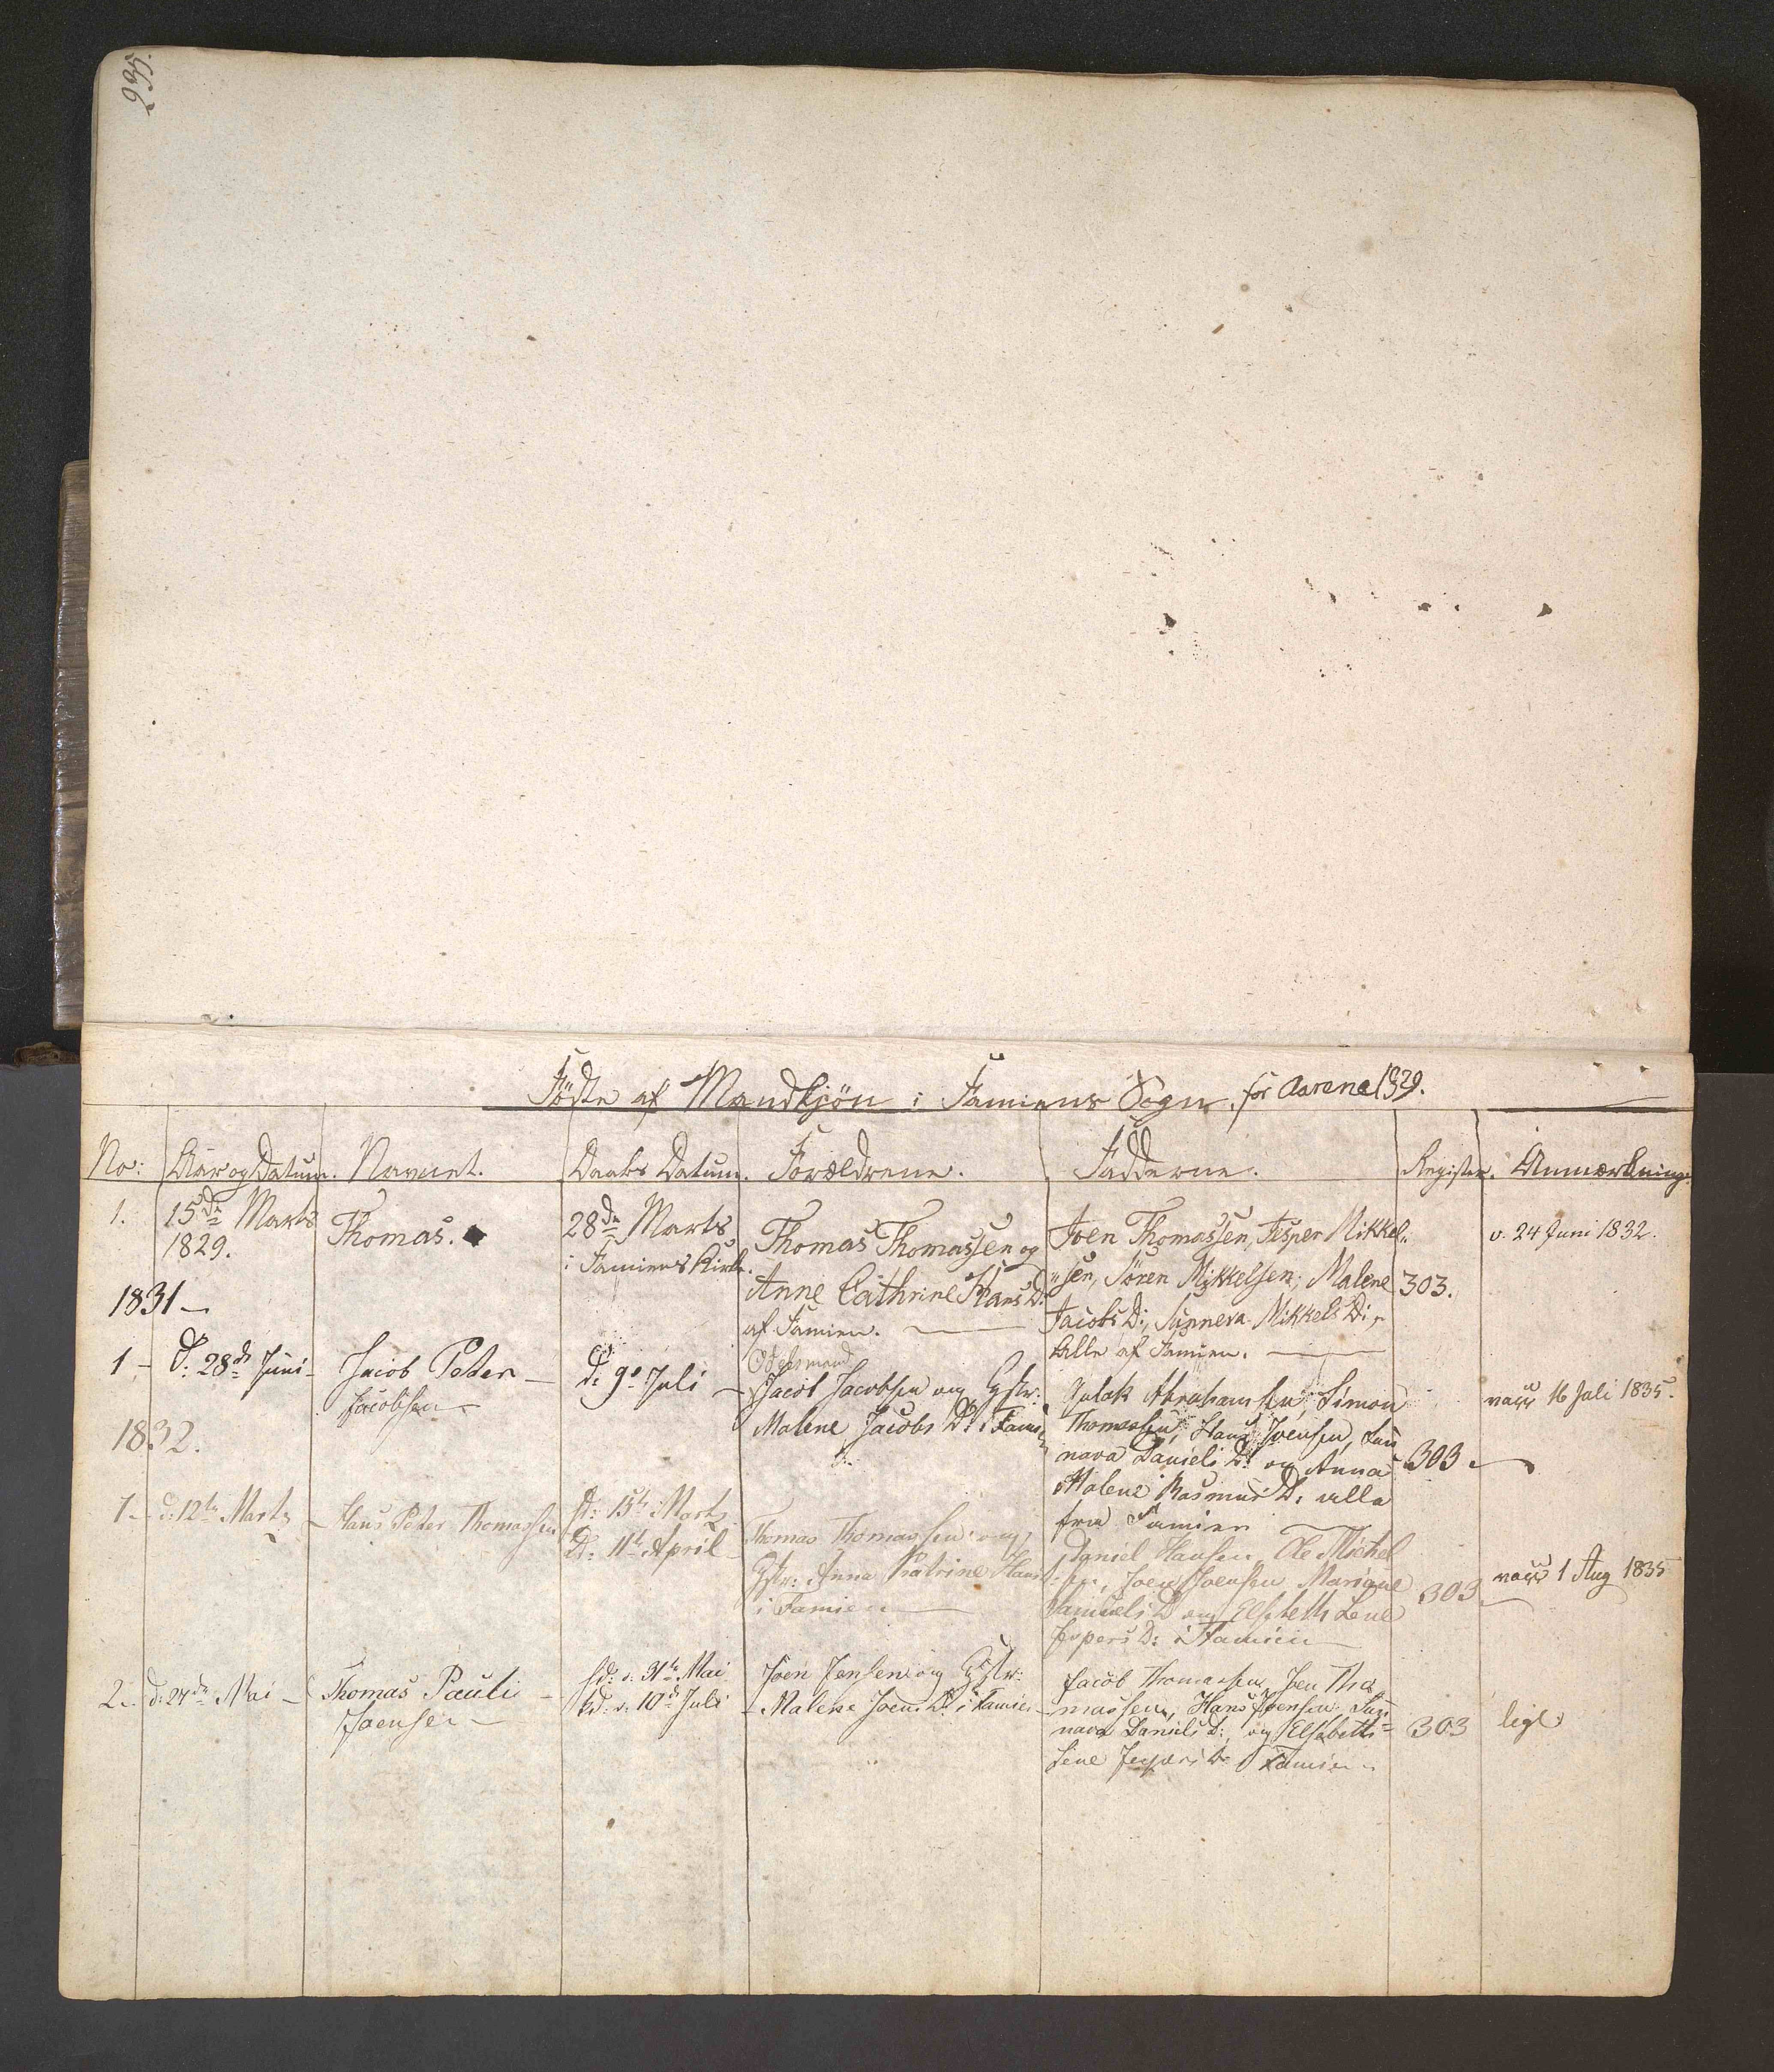 Födte af Mandkjön i Famiens Sogn, for Aarene 1829.
No: Aar og Datum. Navnet. Daabs Datum. Forældrene. Fadderne. Register. Anmærkning.
1. 15de Marts
1829.
Thomas.
28de Marts
i Famiens Kirke.
Thomas Thomassen og
Anne Cathrine Hans D:
af Famien.
Joen Thomassen, Jesper Mikkel-
sen, Sören Mikkelsen, Malene
Jacobs D:, Sunneva Mikkels D:,
Alle af Famien.
303.
v. 24 Juni 1832.
1831
1 - D: 28de Juni -
Jacob Peter -
Jacobsen
D: 9de Juli -
Odelsmand
Jacob Jacobsen og Hstr:
Malene Jacobs D: i Famien
Abrahamsen, Simon
Thomassen, Hans Joensen, Sun
nava Daniels D: og Anna
Malene Rasmus D: alle
fra Famien
303
vacc 16 Juli 1835.
1832.
1 - d: 12te Marts -
Hans Peter Thomassen
d: 15te Marts
D: 11te April -
Thomas Thomassen og
Hstr: Anna Katrine Hans
i Famien
Daniel Hansen, Ole Michel
sen, Joen Joensen, Mariane
Samuels D og Elsebeth Lene
Jespers D: i Famien
303
vacc 1 Aug 1835
2. d: 27de Mai -
Thomas Pauli -
Joensen -
hd: d: 31te Mai
kd: d: 10de Juli
Joen Jensen og Hstr:
Malene Joens D: i Famien
Jacob Thomassen, Joen Tho
massen, Hans Joensen, Sun
nava Daniels D:, og Elsebeth
Lene Jespers D: i Famien
303
lige